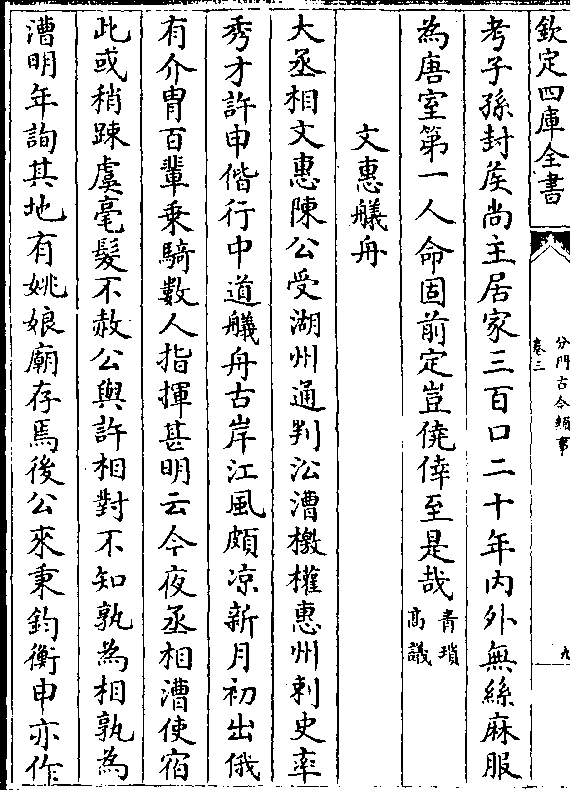 欽定四庫全書
分門古今類事
卷三
九
考子孫封矦尚主居家三百口二十年内外無絲麻服
為唐室第一人命固前定豈僥倖至是哉青瑣高議
文惠艤舟
大丞相文惠陳公受湖州通判沿漕檄權惠州刺史率
秀才許申偕行中道艤舟古岸江風頗凉新月初出俄
有介胄百輩乗騎數人指揮甚明云今夜丞相漕使宿
此或稍踈虞毫髮不赦公與許相對不知孰為相孰為
漕明年詢其地有姚娘廟存焉後公來秉鈞衡申亦作